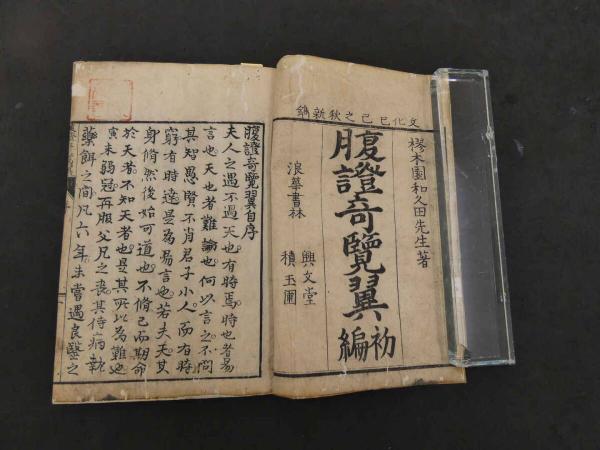 文化己巳之秋新鐫
樛木園和久田先生著
腹證奇覽翼初編
浪華書林
興文堂
積玉圃
腹證奇覽翼自序
夫人之遇不過天也有時焉時也者易
言也天也者難諭也何以言之不問
其智愚賢不肖君子小人而有時
窮有時達是為易言也若夫天其
身脩然後始可道也不脩己而期命
於天者不知天者也是其所以為難也
寅未弱冠再服父兄之喪其侍病執
藥餌之間凡六年未嘗遇良醫之